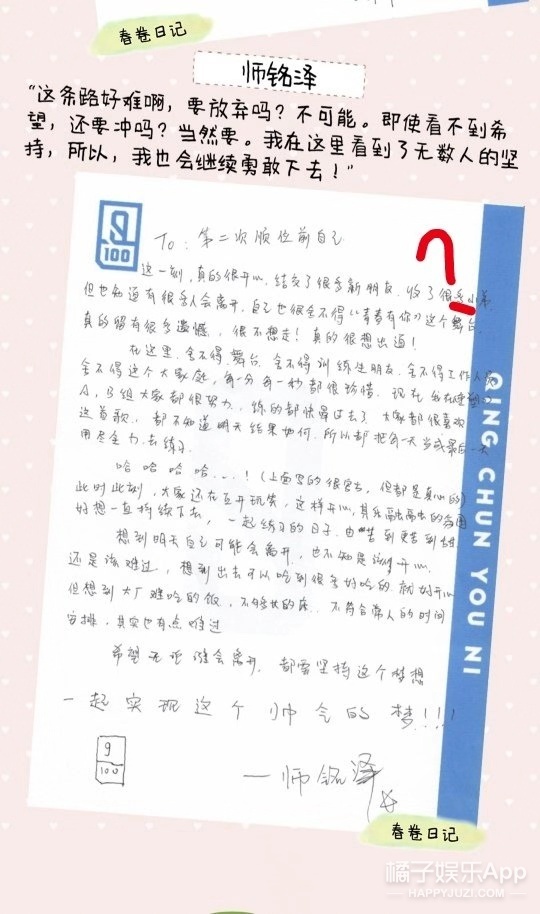 春卷日记
师铭泽
“这条路好难啊，要放弃吗？不可能。即使看不到希
望，还要冲吗？当然要。我在这里看到了无数人的坚
持，所以，我也会继续勇敢下去！”
9
100
To：第二次顺位前自己
?
这一刻，真的很开心，结交了很多新朋友，收了很多小弟，
但也知道有很多人会离开，自己也很舍不得《青春有你》这个舞台
真的留有很多遗憾，很不想走！真的很想出道！
在这里，舍不得舞台，舍不得训练生朋友，舍不得工作人员
舍不得这个大家庭，每一分每一秒都很珍惜，现在
A，B组大家都很努力，练的都快晕过去了，大家都很喜欢
这首歌，都不知道明天结果如何，所以都把每一天当成最后一天
用尽全力去练习
哈哈哈哈...！（上面写的很官方，但都是真心的）
此时此刻，大家还在互开玩笑，这样开心，其乐融融的氛围
好想一直持续下去，一起练习的日子，由
想到明天自己可能会离开，也不知是该开心
还是该难过，想到出去可以吃到很多好吃的就好开心
但想到大厂难吃的饭，不舒服的床，不符合常人的时间
安排，其实也有点难过
希望无论谁会离开，都要坚持这个梦想
一起实现这个帅气的梦！！！
9
100
—师铭泽
QING CHUN YOU NI
春卷日记
橘子娱乐App
HAPPYJUZI.COM